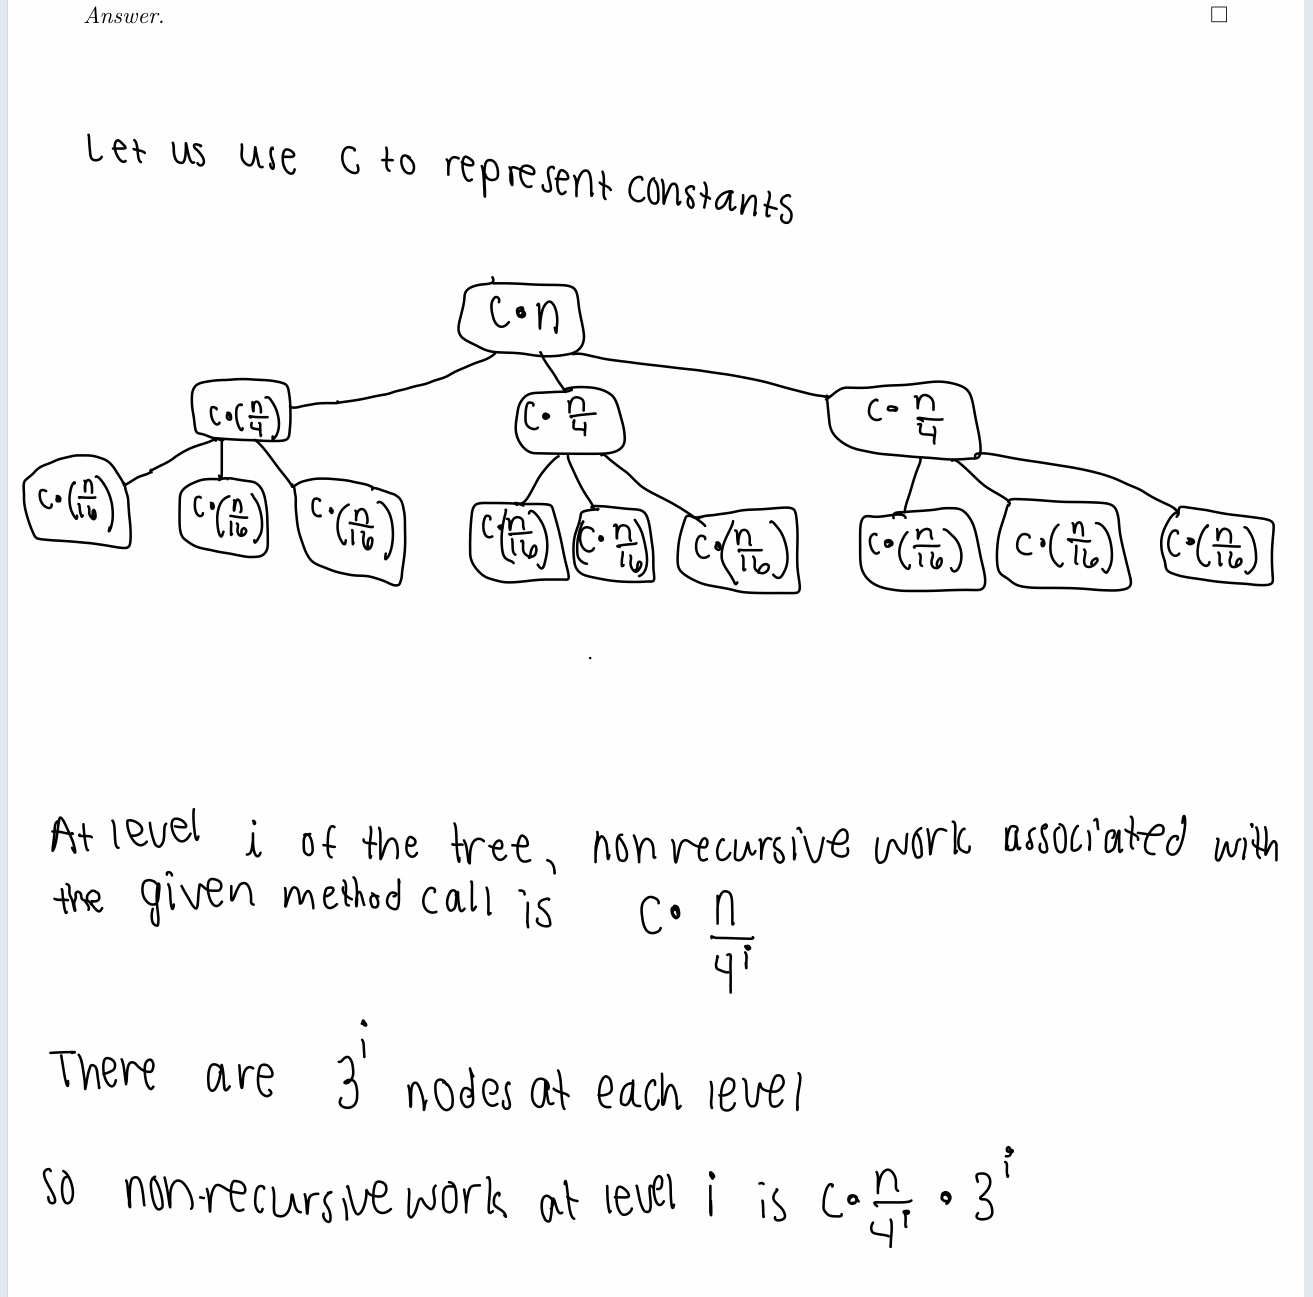 Answer. □
Let us use C to represent constants
C • n
C•(n/4) C• n/4 C• n/4
C•(n/16) C•(n/16) C•(n/16) C(n/16) C• n/16 C•(n/16) C•(n/16) C•(n/16) C•(n/16)
At level i of the tree, nonrecursive work associated with
the given method call is C• n/4^i
There are 3^i nodes at each level
so non-recursive work at level i is C• n/4^i • 3^i